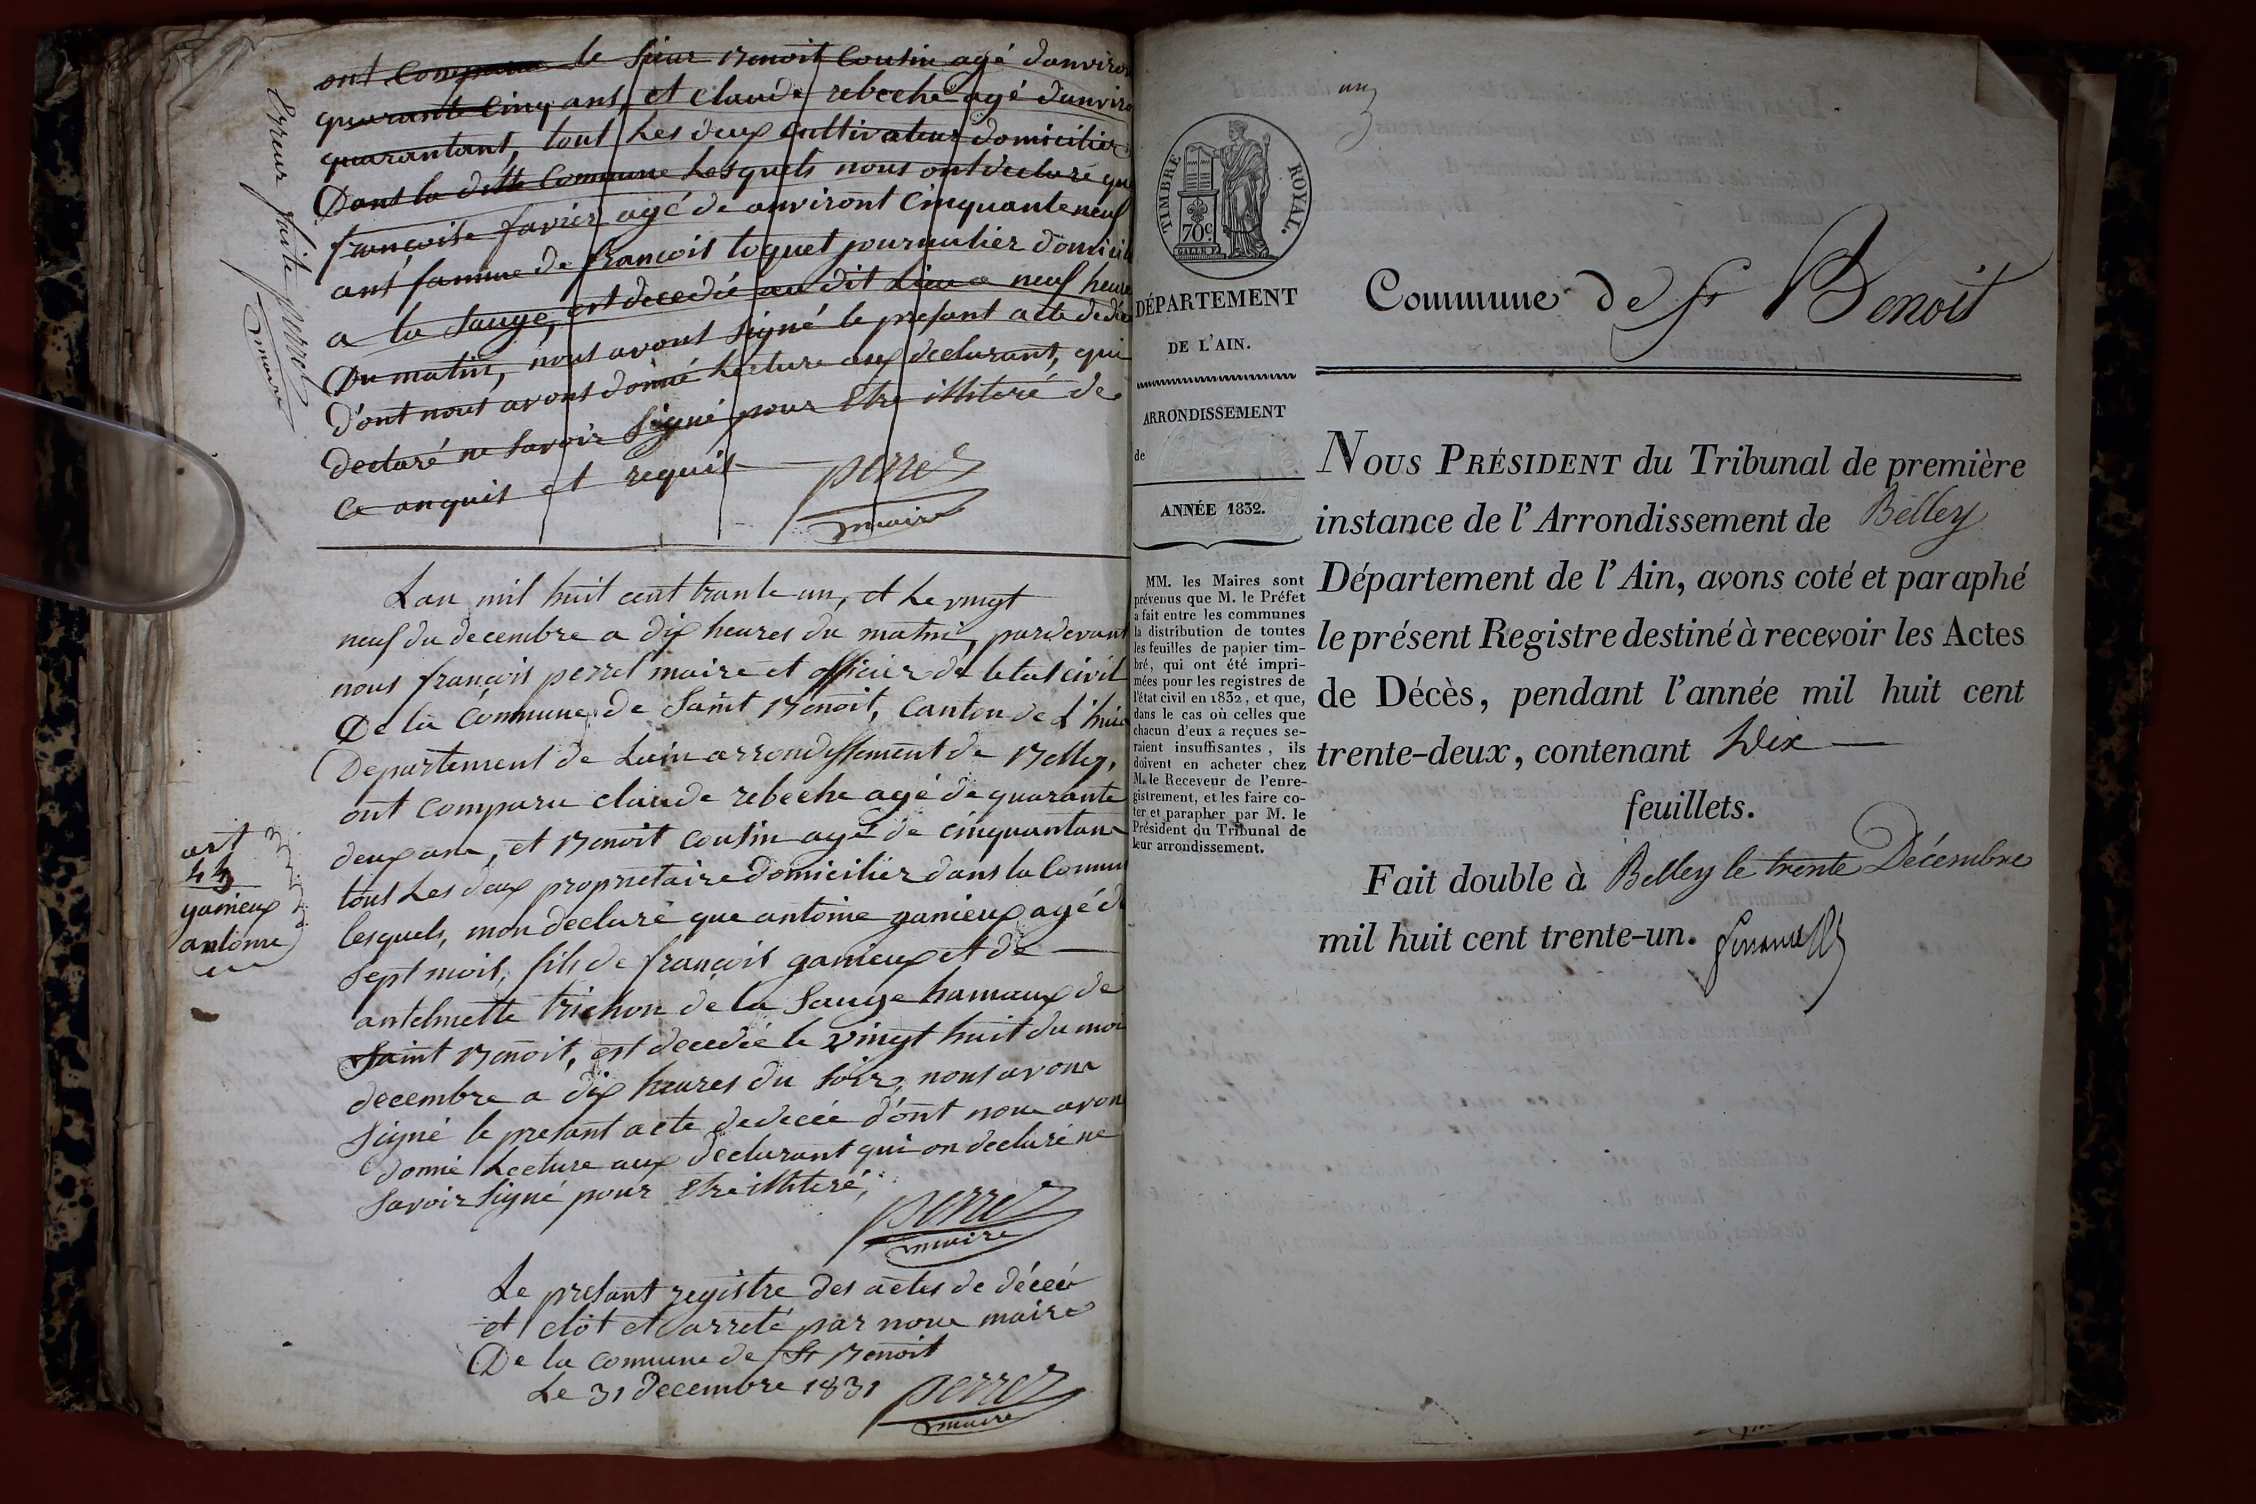 ont comparu le sieur Benoit Cousin agé danviron
quarante cinq ans, et claude rebeche agé danviron
quarantant, tout Les deux cultivateur domicilier
Dans la ditte Commune Lesquels nous ont declaré que
françoise favier agé de anviront cinquante neuf
ant famme de françois toquet journalier domicilié
a la Sauge, est decedié au dit Lieu a neuf heures
Du matin, nous avont signé le presant acte de décé
d'ont nous avont donné Lecture aux declarant, qui
declaré ne savoir signé pour Etre illiteré de
ce anquis et requis
perret
maire
Erreur faite perret
maire
Lan mil huit cent trante un, et Le vingt
neuf du decembre a dix heures du matin, pardevant
nous françois perret maire et officier de letat civil
De la Commune de Saint Benoit, Canton de L'huis
Departement de Lain arrondissement de Belley,
ont comparu claude rebeche agé de quarante
deux ans, et Benoit cousin agé de cinquantant
tout Les deux proprietaire domicilier dans la Commune
lesquels, mon declaré que antoine ganieux agé de
sept mois, fils de françois ganieux et de
antelmette trichon de la Sauge hamaux de
Saint Benoit, est decedié le vingt huit du moi
decembre a dix heures du soir, nous avons
signé le presant acte dedecée d'ont nous avon
donné Lecture aux declarant qui on declaré ne
savoir signé pour Etre illiteré,
perret
maire
art
44
ganieux
antoine
Le presant registre des actes de décée
et clôt et arreté par nous maire
De la commune de St Benoit
Le 31 decembre 1831
perret
maire
un
TIMBRE ROYAL.
70c
DÉPARTEMENT
DE L'AIN.
ARRONDISSEMENT
de
ANNÉE 1832.
MM. les Maires sont
prévenus que M. le Préfet
a fait entre les communes
la distribution de toutes
les feuilles de papier tim-
bré, qui ont été impri-
mées pour les registres de
l'état civil en 1832, et que,
dans le cas où celles que
chacun d'eux a reçues se-
raient insuffisantes, ils
doivent en acheter chez
M. le Receveur de l'enre-
gistrement, et les faire co-
ter et parapher par M. le
Président du Tribunal de
leur arrondissement.
Commune de St Benoit
NOUS PRÉSIDENT du Tribunal de première
instance de l'Arrondissement de Belley
Département de l'Ain, avons coté et paraphé
le présent Registre destiné à recevoir les Actes
de Décès, pendant l'année mil huit cent
trente-deux, contenant Dix
feuillets.
Fait double à Belley le trente Décembre
mil huit cent trente-un.